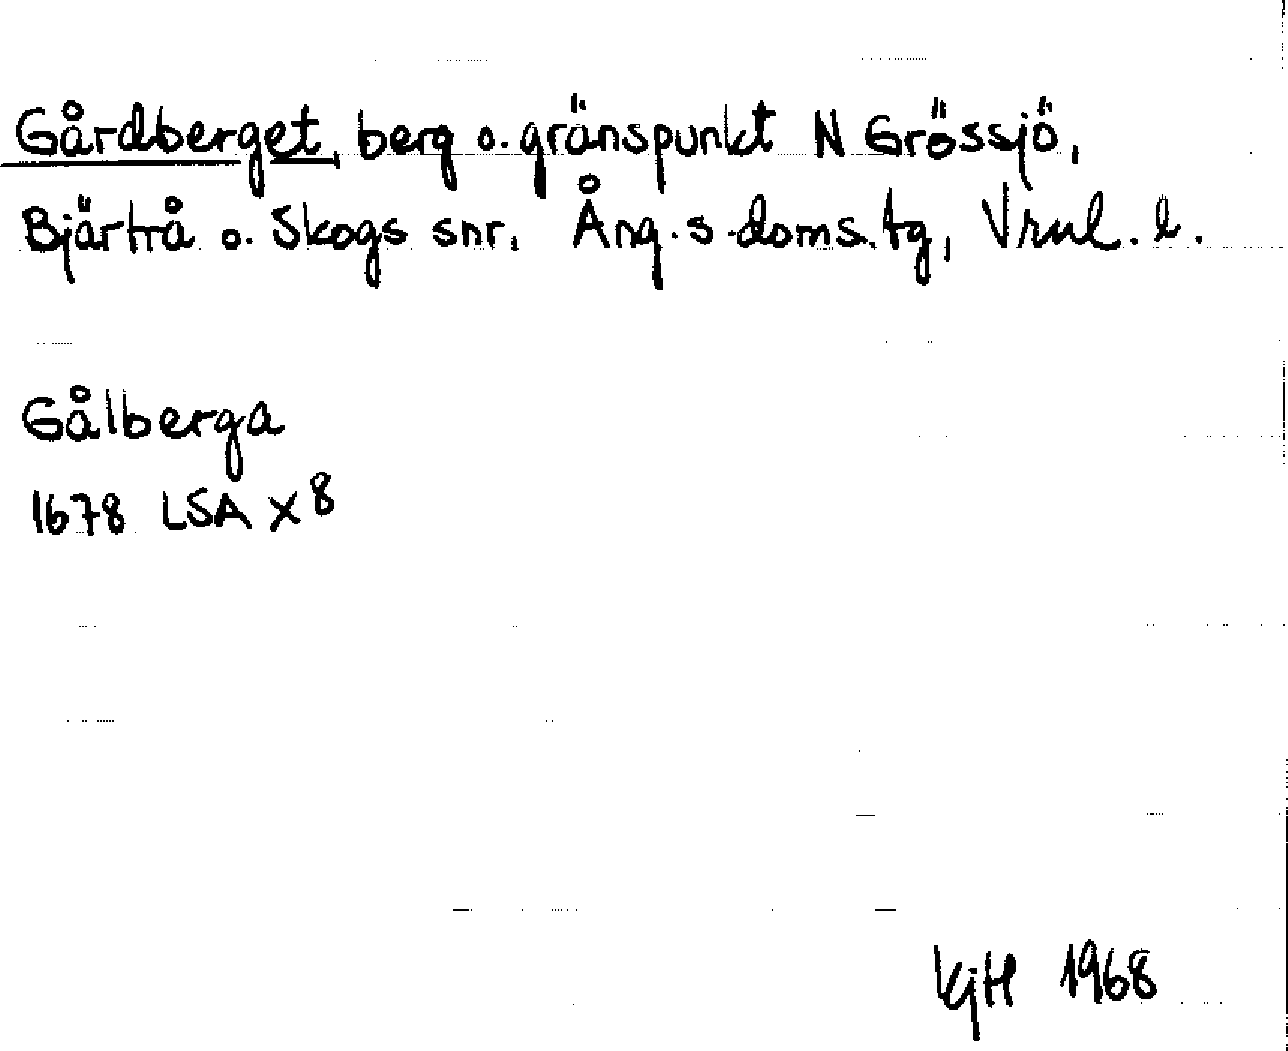 Gårdberget, berg o. gränspunkt N Grössjö,
Bjärtrå o. Skogs snr. Ång.s doms.tg, Vrnl. l.
Gålberga
1678 LSA X 8
KjH 1968